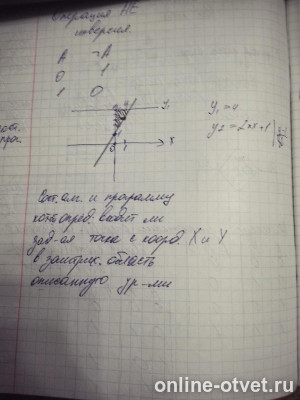 Операция НЕ
инверсия
A ¬A
0 1
1 0
y₁ y₁ = 4
y₂ = 2*x+1
X
Сост. ал. и программу
кот. опред. входит ли
зад-ая точка с коорд. X и Y
в заштрих. область
описанную ур-ми
online-otvet.ru